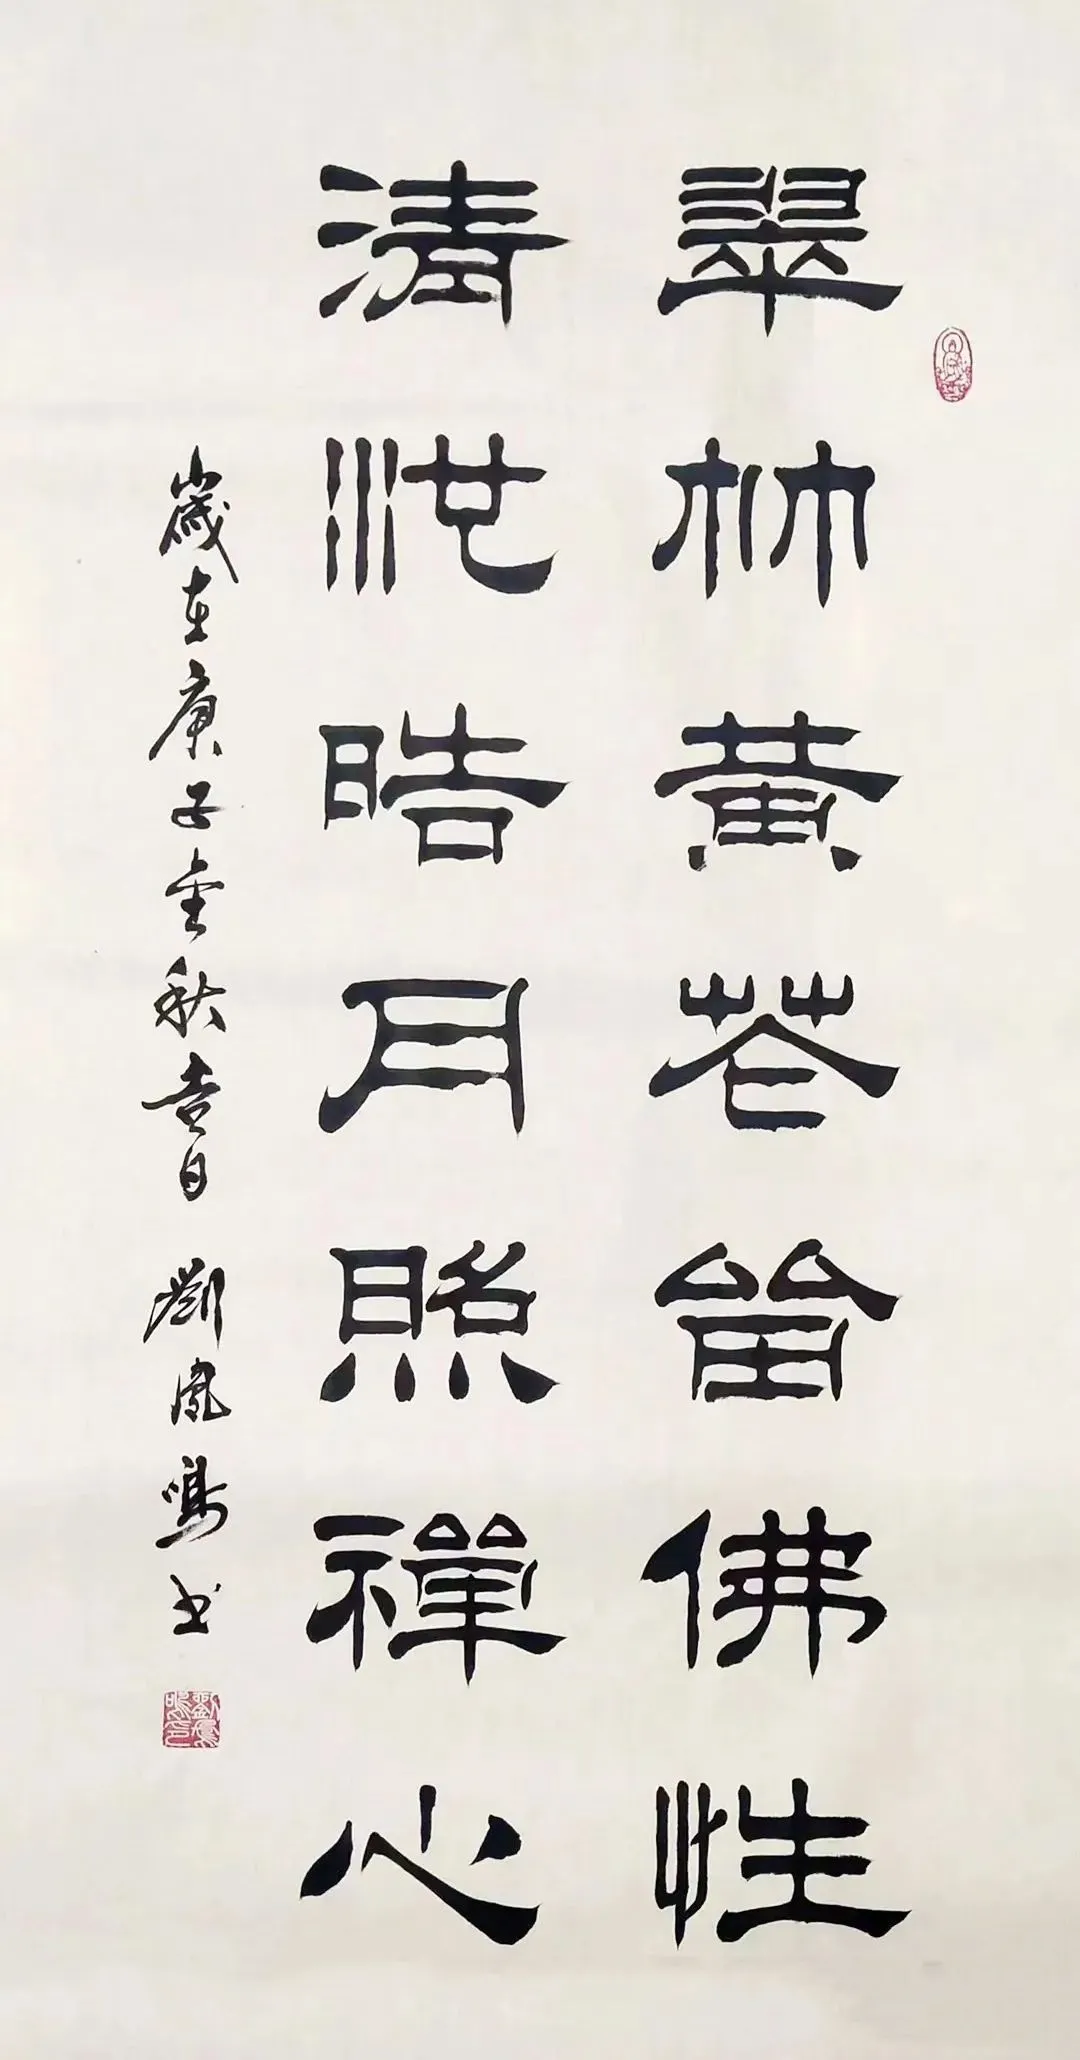 翠竹黃花留佛性
清池晧月照禪心
歲在庚子金秋吉日 劉鳳鳴書
劉鳳鳴印